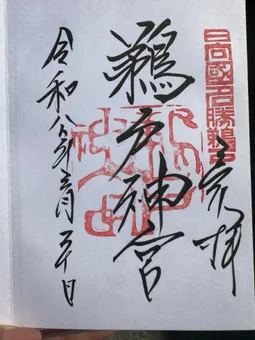 日向國名勝鵜戸
奉拝
鵜戸神宮
令和年月十日